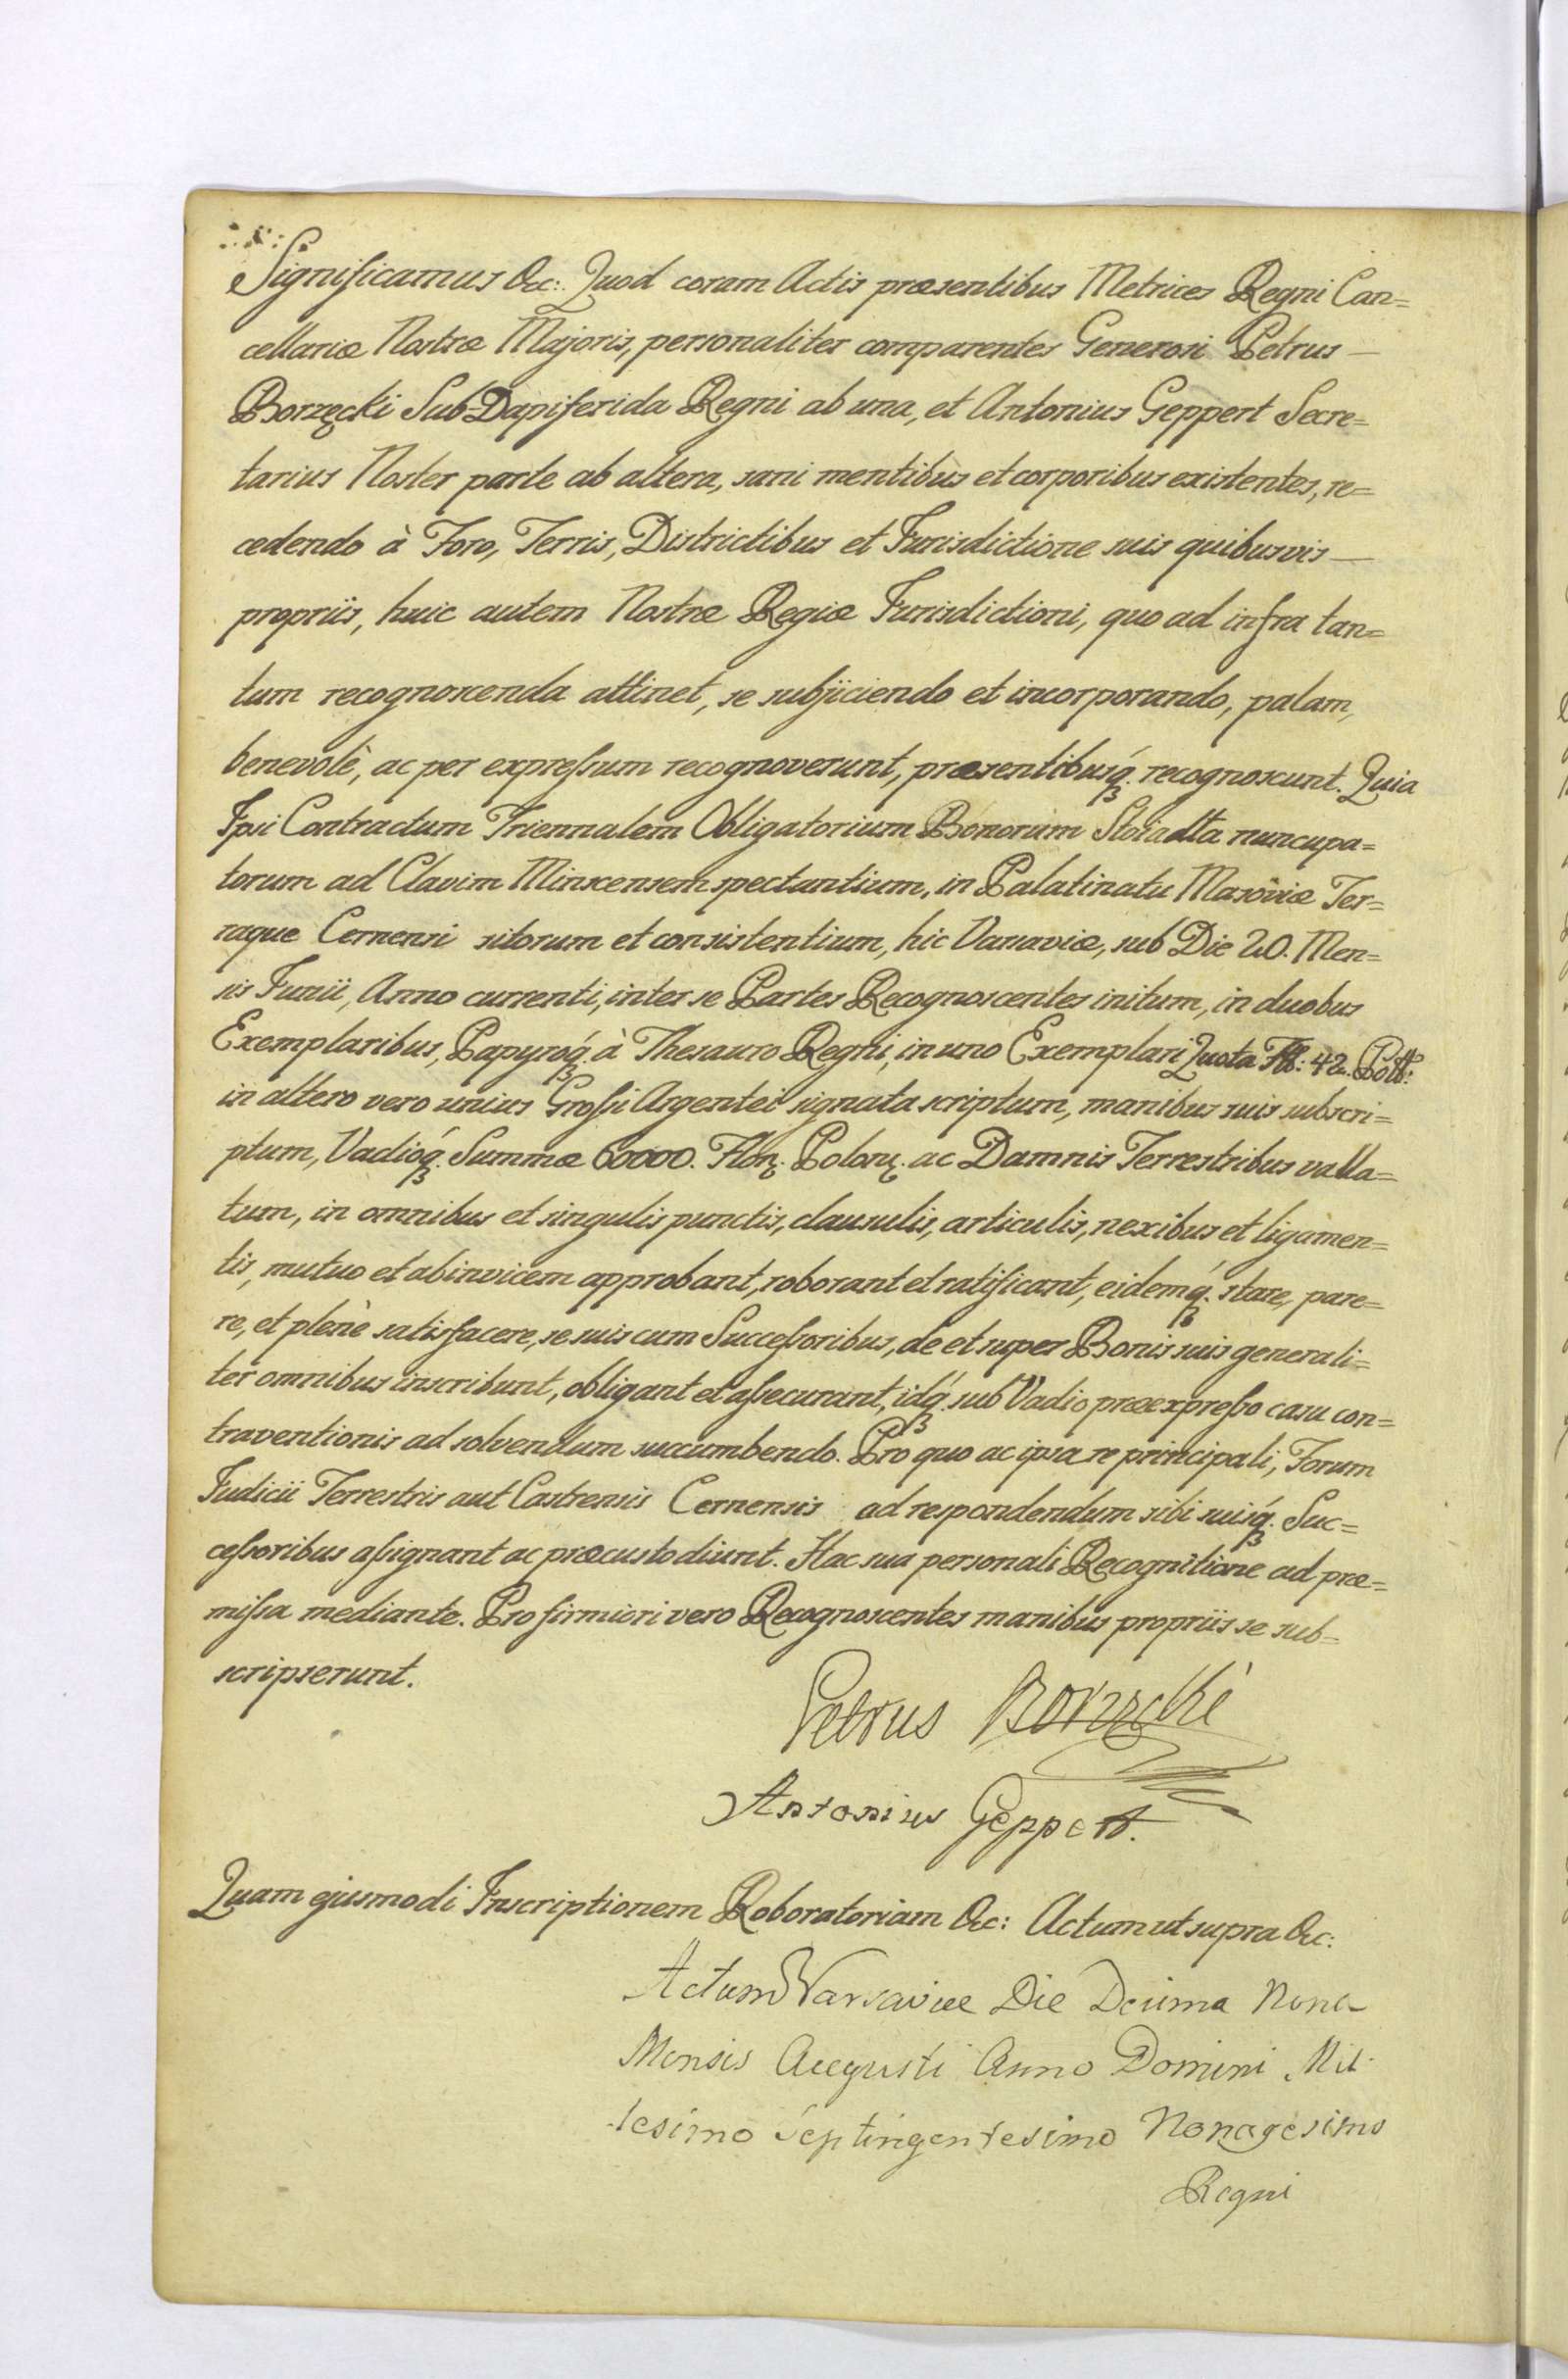 Significamus &c: Quod coram Actis præsentibus Metrices Regni Can=
cellariæ Nostræ Majoris, personaliter comparentes Generosi Petrus —
Borzęcki SubDapiferida Regni ab una, et Antonius Geppert Secre=
tarius Noster parte ab altera, sani mentibus et corporibus existentes, re=
cedendo à Foro, Terris, Districtibus et Jurisdictione suis quibusvis —
propriis, huic autem Nostræ Regiæ Jurisdictioni, quo ad infra tan=
tum recognoscenda attinet, se subjiciendo et incorporando, palam,
benevolè, ac per expressum recognoverunt, præsentibusq́. recognoscunt. Quia
Ipsi Contractum Triennalem Obligatorium Bonorum nuncupa=
torum ad Clavim Minscensem spectantium, in Palatinatu Masoviæ Ter=
raque Cernensi sitorum et consistentium, hic Varsaviæ, sub Die 20. Men=
sis Junii, Anno currenti, inter se Partes Recognoscentes initum, in duobus
Exemplaribus, Papyroq́. à Thesauro Regni, in uno Exemplari Quota Fl: 42. Poll:
in altero vero unius Grossi Argentei signata scriptum, manibus suis subscri=
ptum, Vadioq́. Summæ 60000. Flon. Polon. ac Damnis Terrestribus valla=
tum, in omnibus et singulis punctis, clausulis, articulis, nexibus et ligamen=
tis, mutuo et abinvicem approbant, roborant et ratificant, eidemq́. stare, pare=
re, et plenè satisfacere, se suis cum Successoribus, de et super Bonis suis generali=
ter omnibus inscribunt, obligant et assecurant, idq́. sub Vadio præexpresso casu con=
traventionis ad solvendum succumbendo. Pro quo ac ipsa re principali, Forum
Judicii Terrestris aut Castrensis Cernensis ad respondendum sibi suisq́. Suc=
cessoribus assignant ac præcustodiunt. Hac sua personali Recognitione ad præ=
missa mediante. Pro firmiori vero Recognoscentes manibus propriis se sub=
scripserunt.
Petrus Borzęcki
Antonius Geppert.
Quam ejusmodi Inscriptionem Roboratoriam &c: Actum ut supra &c:
Actum Varsaviæ Die Decima Nona
Mensis Augusti Anno Domini Mil-
lesimo Septingentesimo Nonagesimo
Regni